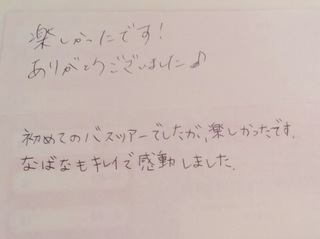 楽しかったです!
ありがとうございました♪
初めてのバスツアーでしたが、楽しかったです.
なばなもキレイで感動しました.